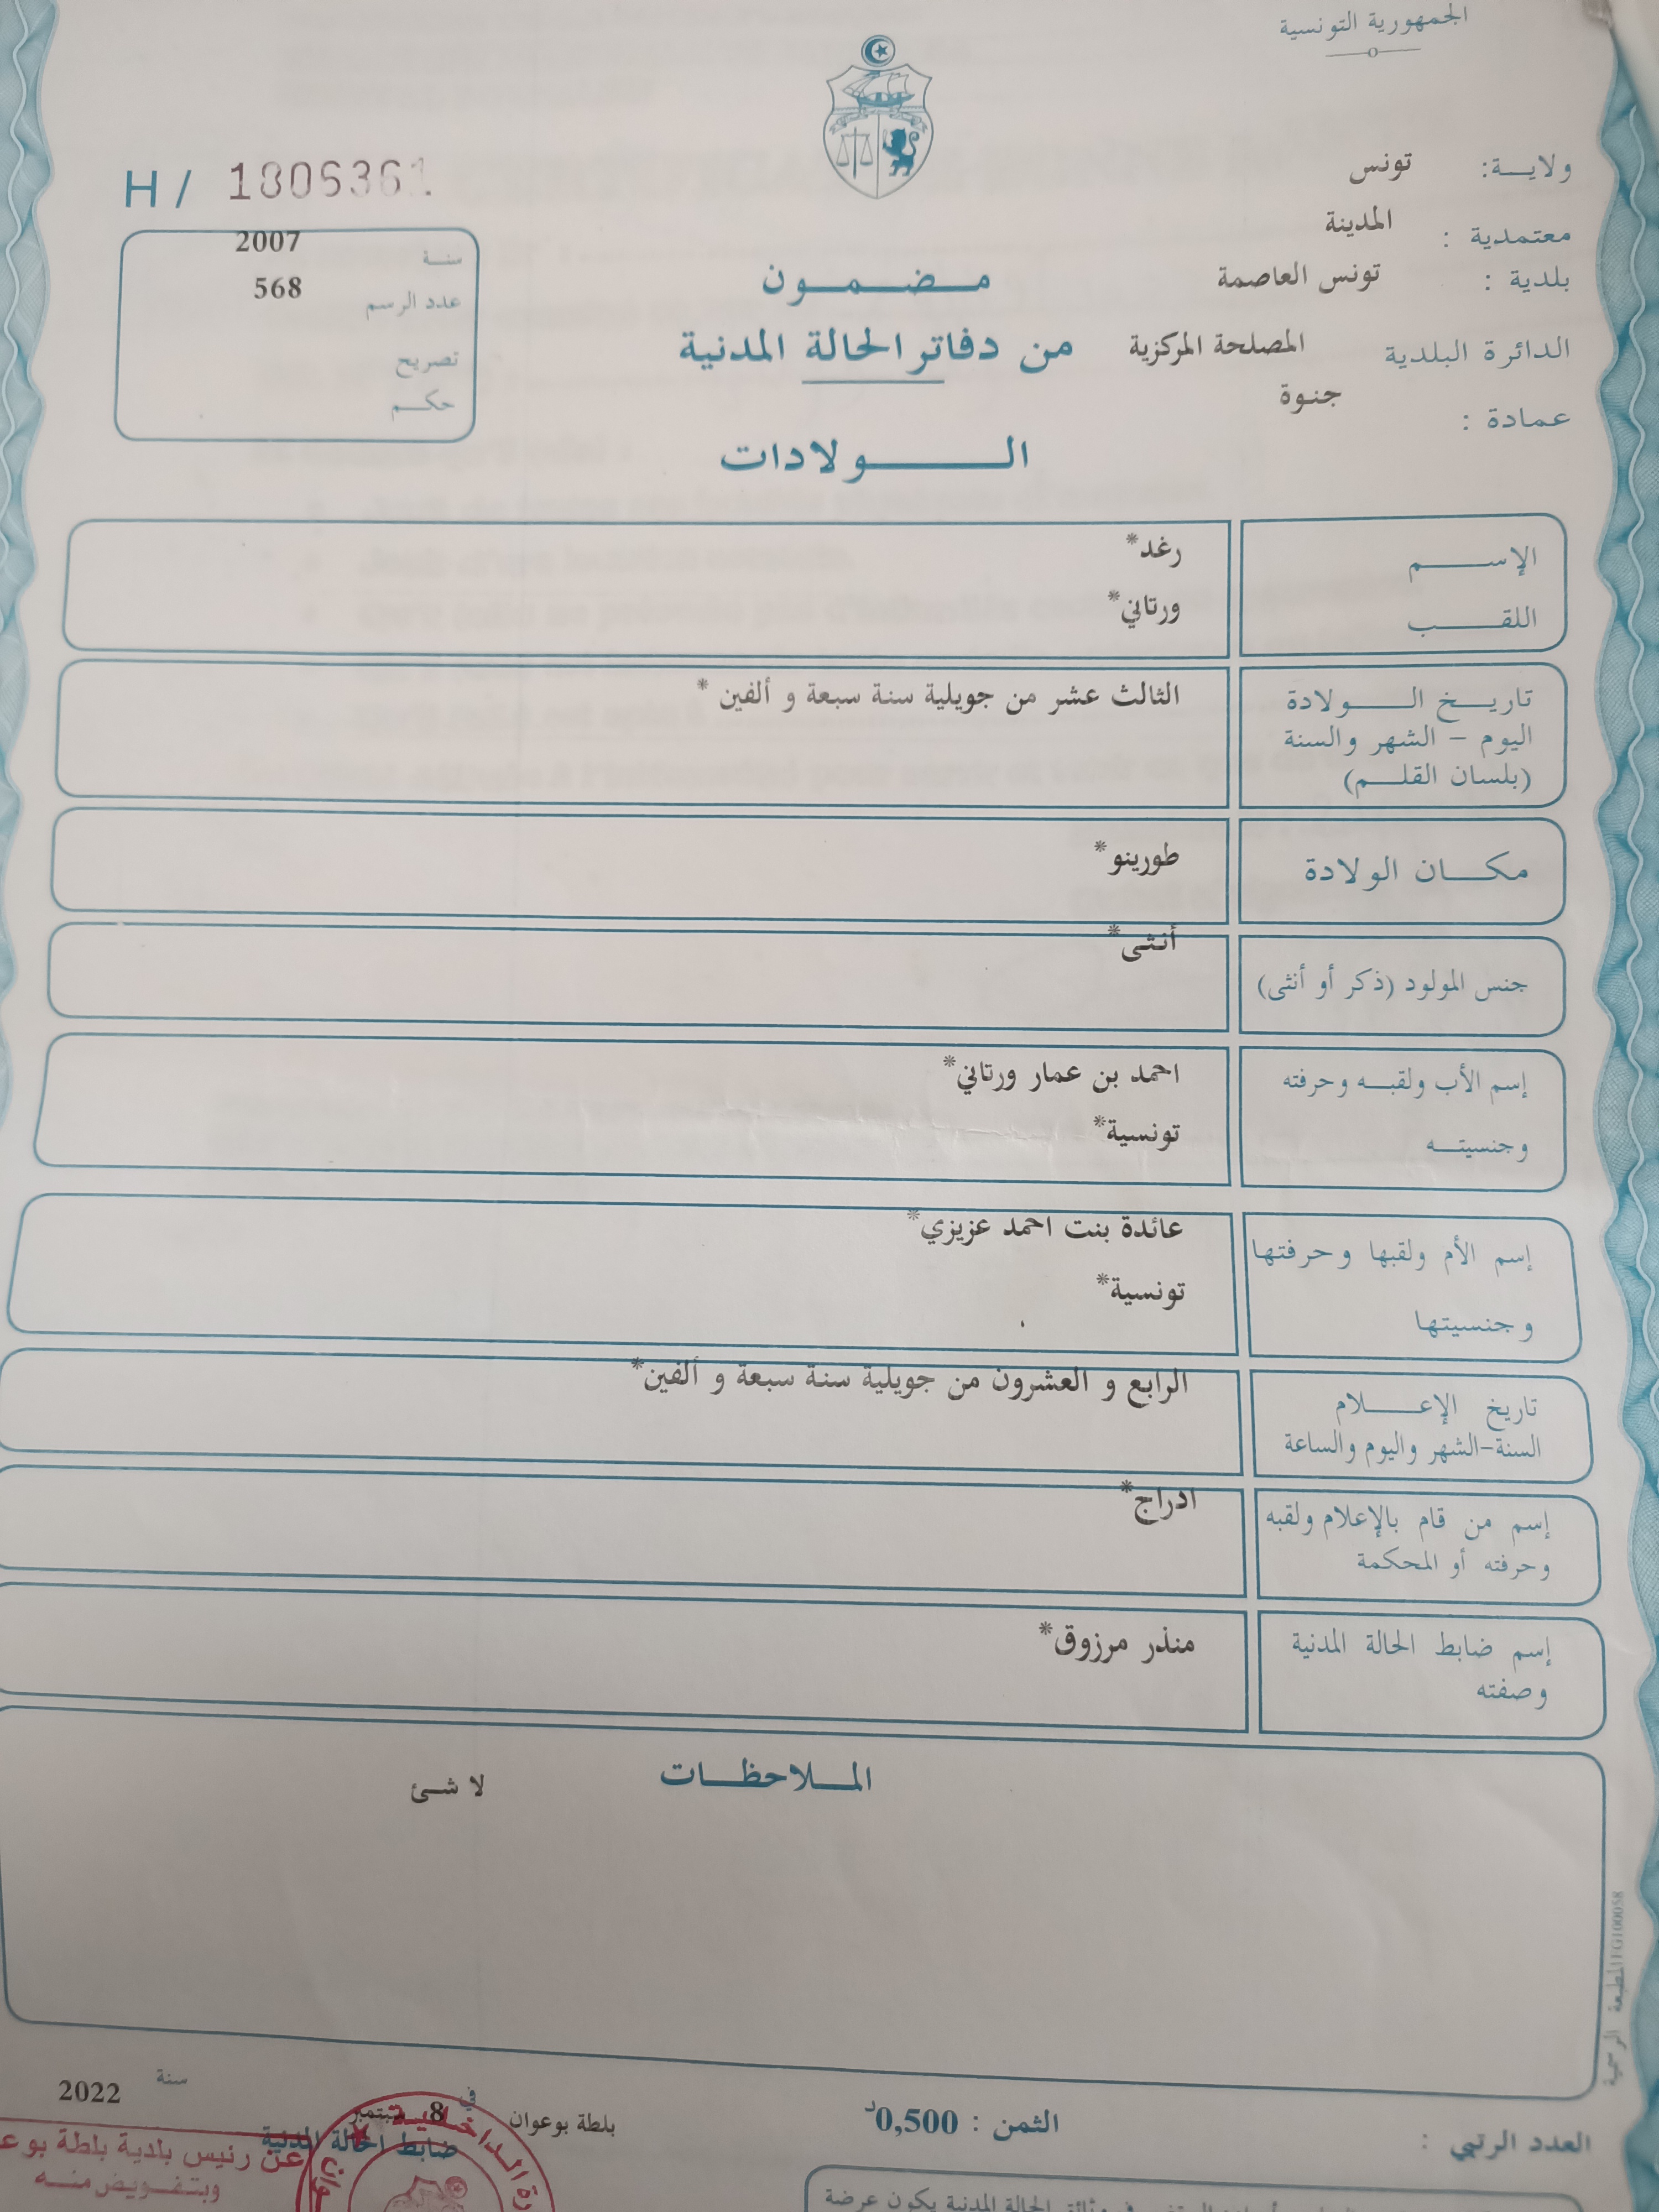 الجمهورية التونسية
ولاية: تونس
معتمدية : المدينة
بلدية : تونس العاصمة
الدائرة البلدية المصلحة المركزية
عمادة : جنوة
H / 1806361
سنة 2007
عدد الرسم 568
تصريح
حكم
مضمون
من دفاتر الحالة المدنية
الولادات
الإسم رغد*
اللقب ورتاني*
تاريخ الولادة الثالث عشر من جويلية سنة سبعة و ألفين *
اليوم – الشهر والسنة
(بلسان القلم)
مكان الولادة طورينو*
جنس المولود (ذكر أو أنثى) أنثى*
إسم الأب ولقبه وحرفته احمد بن عمار ورتاني*
وجنسيته تونسية*
إسم الأم ولقبها وحرفتها عائدة بنت احمد عزيزي*
وجنسيتها تونسية*
تاريخ الإعلام الرابع و العشرون من جويلية سنة سبعة و ألفين*
السنة-الشهر واليوم والساعة
إسم من قام بالإعلام ولقبه ادراج*
وحرفته أو المحكمة
إسم ضابط الحالة المدنية منذر مرزوق*
وصفته
الملاحظات
لا شئ
المطبعة الرسمية
العدد الرتبي :
الثمن : 0,500د
بلطة بوعوان في 8 سبتمبر سنة 2022
ضابط الحالة المدنية
عن رئيس بلدية بلطة
وبتفويض منه
الحالة المدنية يكون عرضة